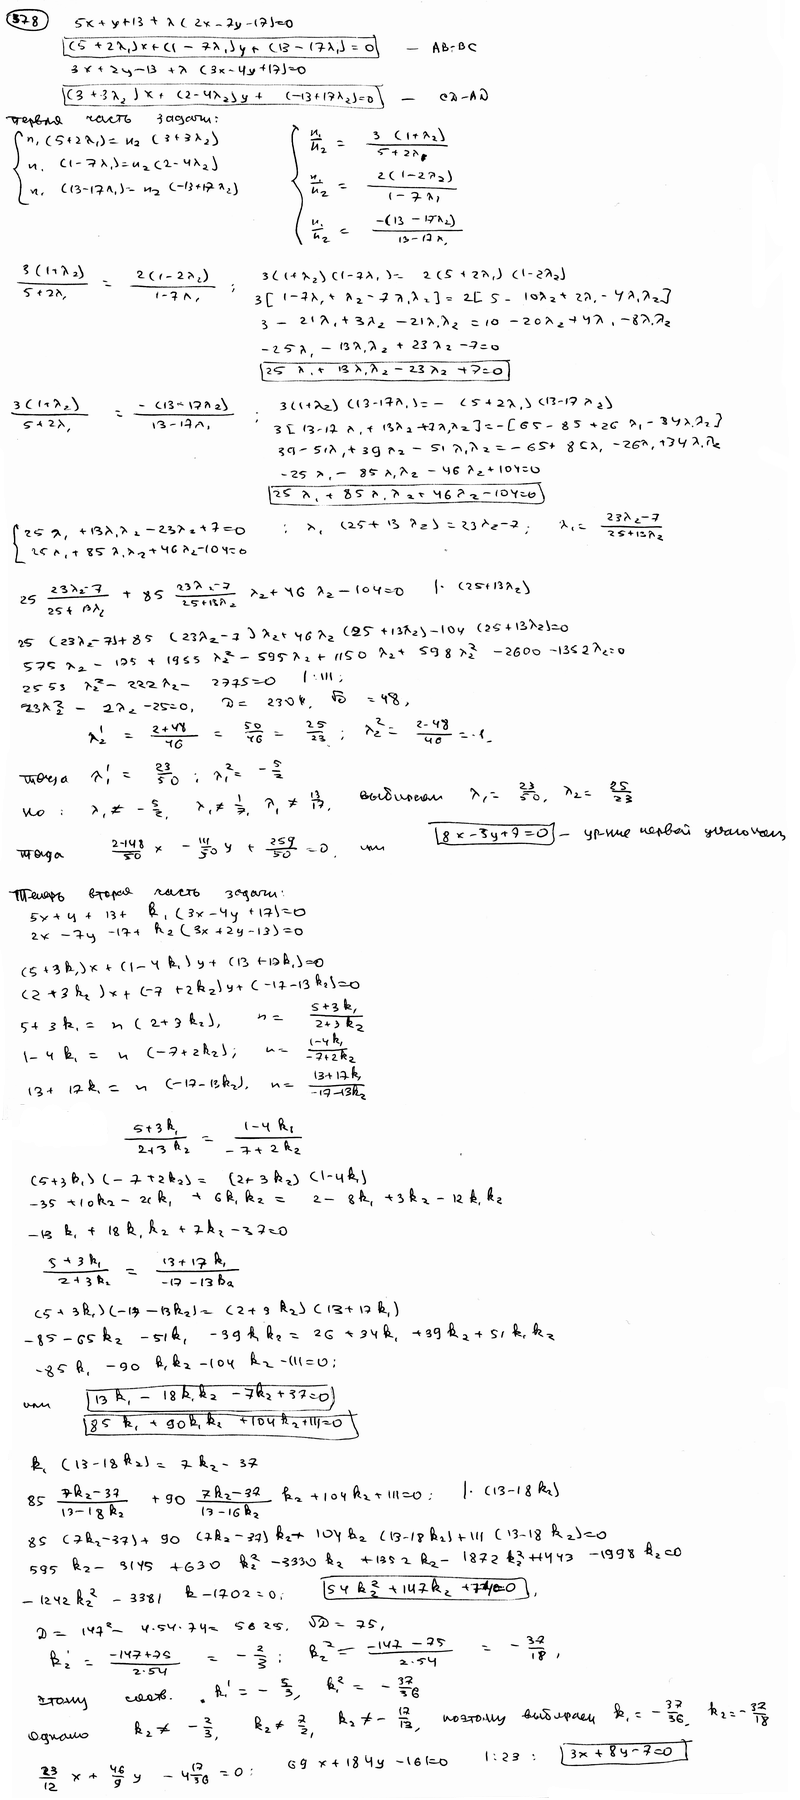 378
5x + y + 13 + λ(2x - 7y - 17) = 0
(5 + 2λ₁)x + (1 - 7λ₁)y + (13 - 17λ₁) = 0 — AB-BC
3x + 2y - 13 + λ(3x - 4y + 17) = 0
(3 + 3λ₂)x + (2 - 4λ₂)y + (-13 + 17λ₂) = 0 — CD-AD
первая часть задачи:
n₁(5 + 2λ₁) = n₂(3 + 3λ₂)
n₁(1 - 7λ₁) = n₂(2 - 4λ₂)
n₁(13 - 17λ₁) = n₂(-13 + 17λ₂)
n₁/n₂ = 3(1 + λ₂)/(5 + 2λ₁)
n₁/n₂ = 2(1 - 2λ₂)/(1 - 7λ₁)
n₁/n₂ = -(13 - 17λ₂)/(13 - 17λ₁)
3(1 + λ₂)/(5 + 2λ₁) = 2(1 - 2λ₂)/(1 - 7λ₁); 3(1 + λ₂)(1 - 7λ₁) = 2(5 + 2λ₁)(1 - 2λ₂)
3[1 - 7λ₁ + λ₂ - 7λ₁λ₂] = 2[5 - 10λ₂ + 2λ₁ - 4λ₁λ₂]
3 - 21λ₁ + 3λ₂ - 21λ₁λ₂ = 10 - 20λ₂ + 4λ₁ - 8λ₁λ₂
-25λ₁ - 13λ₁λ₂ + 23λ₂ - 7 = 0
25λ₁ + 13λ₁λ₂ - 23λ₂ + 7 = 0
3(1 + λ₂)/(5 + 2λ₁) = -(13 - 17λ₂)/(13 - 17λ₁); 3(1 + λ₂)(13 - 17λ₁) = -(5 + 2λ₁)(13 - 17λ₂)
3[13 - 17λ₁ + 13λ₂ + 17λ₁λ₂] = -[65 - 85 + 26λ₁ - 34λ₁λ₂]
39 - 51λ₁ + 39λ₂ - 51λ₁λ₂ = -65 + 85λ₂ - 26λ₁ + 34λ₁λ₂
-25λ₁ - 85λ₁λ₂ - 46λ₂ + 104 = 0
25λ₁ + 85λ₁λ₂ + 46λ₂ - 104 = 0
25λ₁ + 13λ₁λ₂ - 23λ₂ + 7 = 0 ; λ₁(25 + 13λ₂) = 23λ₂ - 7; λ₁ = (23λ₂ - 7)/(25 + 13λ₂)
25λ₁ + 85λ₁λ₂ + 46λ₂ - 104 = 0
25 (23λ₂ - 7)/(25 + 13λ₂) + 85 (23λ₂ - 7)/(25 + 13λ₂) λ₂ + 46λ₂ - 104 = 0 |·(25 + 13λ₂)
25(23λ₂ - 7) + 85(23λ₂ - 7)λ₂ + 46λ₂(25 + 13λ₂) - 104(25 + 13λ₂) = 0
575λ₂ - 175 + 1955λ₂² - 595λ₂ + 1150λ₂ + 598λ₂² - 2600 - 1352λ₂ = 0
2553λ₂² - 222λ₂ - 2775 = 0 |:111;
23λ₂² - 2λ₂ - 25 = 0, D = 2304, √D = 48,
λ₂¹ = (2 + 48)/46 = 50/46 = 25/23; λ₂² = (2 - 48)/46 = -1.
тогда λ₁¹ = 23/50; λ₁² = -5/2
но: λ₁ ≠ -5/2, λ₁ ≠ 1/7, λ₁ ≠ 13/17, выбираем λ₁ = 23/50, λ₂ = 25/23
тогда 2·148/50 x - 111/50 y + 259/50 = 0, или 8x - 3y + 7 = 0 — ур-ние первой диагонали
Теперь вторая часть задачи:
5x + y + 13 + k₁(3x - 4y + 17) = 0
2x - 7y - 17 + k₂(3x + 2y - 13) = 0
(5 + 3k₁)x + (1 - 4k₁)y + (13 + 17k₁) = 0
(2 + 3k₂)x + (-7 + 2k₂)y + (-17 - 13k₂) = 0
5 + 3k₁ = n(2 + 3k₂), n = (5 + 3k₁)/(2 + 3k₂)
1 - 4k₁ = n(-7 + 2k₂); n = (1 - 4k₁)/(-7 + 2k₂)
13 + 17k₁ = n(-17 - 13k₂), n = (13 + 17k₁)/(-17 - 13k₂)
(5 + 3k₁)/(2 + 3k₂) = (1 - 4k₁)/(-7 + 2k₂)
(5 + 3k₁)(-7 + 2k₂) = (2 + 3k₂)(1 - 4k₁)
-35 + 10k₂ - 21k₁ + 6k₁k₂ = 2 - 8k₁ + 3k₂ - 12k₁k₂
-13k₁ + 18k₁k₂ + 7k₂ - 37 = 0
(5 + 3k₁)/(2 + 3k₂) = (13 + 17k₁)/(-17 - 13k₂)
(5 + 3k₁)(-17 - 13k₂) = (2 + 3k₂)(13 + 17k₁)
-85 - 65k₂ - 51k₁ - 39k₁k₂ = 26 + 34k₁ + 39k₂ + 51k₁k₂
-85k₁ - 90k₁k₂ - 104k₂ - 111 = 0;
или 13k₁ - 18k₁k₂ - 7k₂ + 37 = 0
85k₁ + 90k₁k₂ + 104k₂ + 111 = 0
k₁(13 - 18k₂) = 7k₂ - 37
85 (7k₂ - 37)/(13 - 18k₂) + 90 (7k₂ - 37)/(13 - 18k₂) k₂ + 104k₂ + 111 = 0; |·(13 - 18k₂)
85(7k₂ - 37) + 90(7k₂ - 37)k₂ + 104k₂(13 - 18k₂) + 111(13 - 18k₂) = 0
595k₂ - 3145 + 630k₂² - 3330k₂ + 1352k₂ - 1872k₂² + 1443 - 1998k₂ = 0
-1242k₂² - 3381k - 1702 = 0; 54k₂² + 147k₂ + 74 = 0,
D = 147² - 4·54·74 = 5625. √D = 75,
k₂¹ = (-147 + 75)/(2·54) = -2/3; k₂² = (-147 - 75)/(2·54) = -37/18,
этому соотв. k₁¹ = -5/3, k₁² = -37/36
однако k₂ ≠ -2/3, k₂ ≠ 7/2, k₂ ≠ -17/13, поэтому выбираем k₁ = -37/36, k₂ = -37/18
23/12 x + 46/9 y - 4 17/36 = 0; 69x + 184y - 161 = 0 |:23: 3x + 8y - 7 = 0